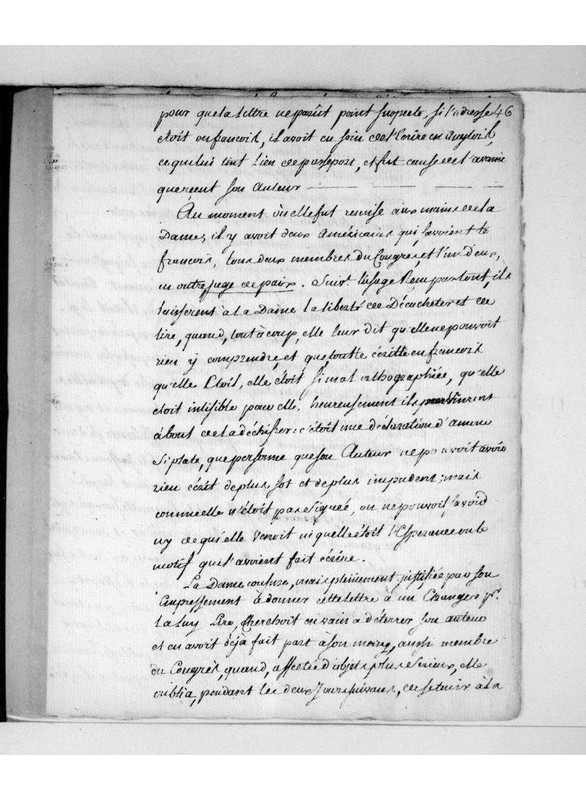 pour que la lettre ne parût point suspecte si l'adresse 46
étoit en françois, il avoit eu soin de l'écrire en Anglois,
ce qui lui tint lieu de passeport, et fut cause de l'avanie
que reçut son Auteur
Au moment où elle fut remise aux mains de la
Dame, il y avoit deux Américains qui savoient le
françois, tous deux membres du Congrès, et l'un d'eux,
en outre, juge de paix. Suivt. l'usage Reçu partout, ils
laissèrent à la Dame la liberté de Décacheter et de
lire, quand, tout à coup, elle leur dit, qu'elle ne pouvoit
rien y comprendre, et que, toutte écritte en françois
qu'elle Etoit, elle étoit si mal orthographiée, qu'elle
étoit inlisible pour elle. heureusement ils parvinrent
à bout de la déchiffrer: c'étoit une déclaration d'amour
si plate, que personne que son Auteur ne pouvoit avoir
rien écrit de plus sot et de plus impudent; mais
comme elle n'étoit pas signée, on ne pouvoit savoir
ny de qui elle venoit ni quelle étoit l'Esperance ou le
motif qui l'avoient fait écrire.
La Dame confuse, mais pleinement justifiée par son
Empressement à donner cette lettre à un Etranger pr.
la luy Lire, Cherchoit en vain à déterrer son auteur
et en avoit déja fait part à son mary, aussi membre
du Congrès, quand, affectée d'objets plus serieux, elle
oublia, pendant les deux Jours suivans, de se tenir à la